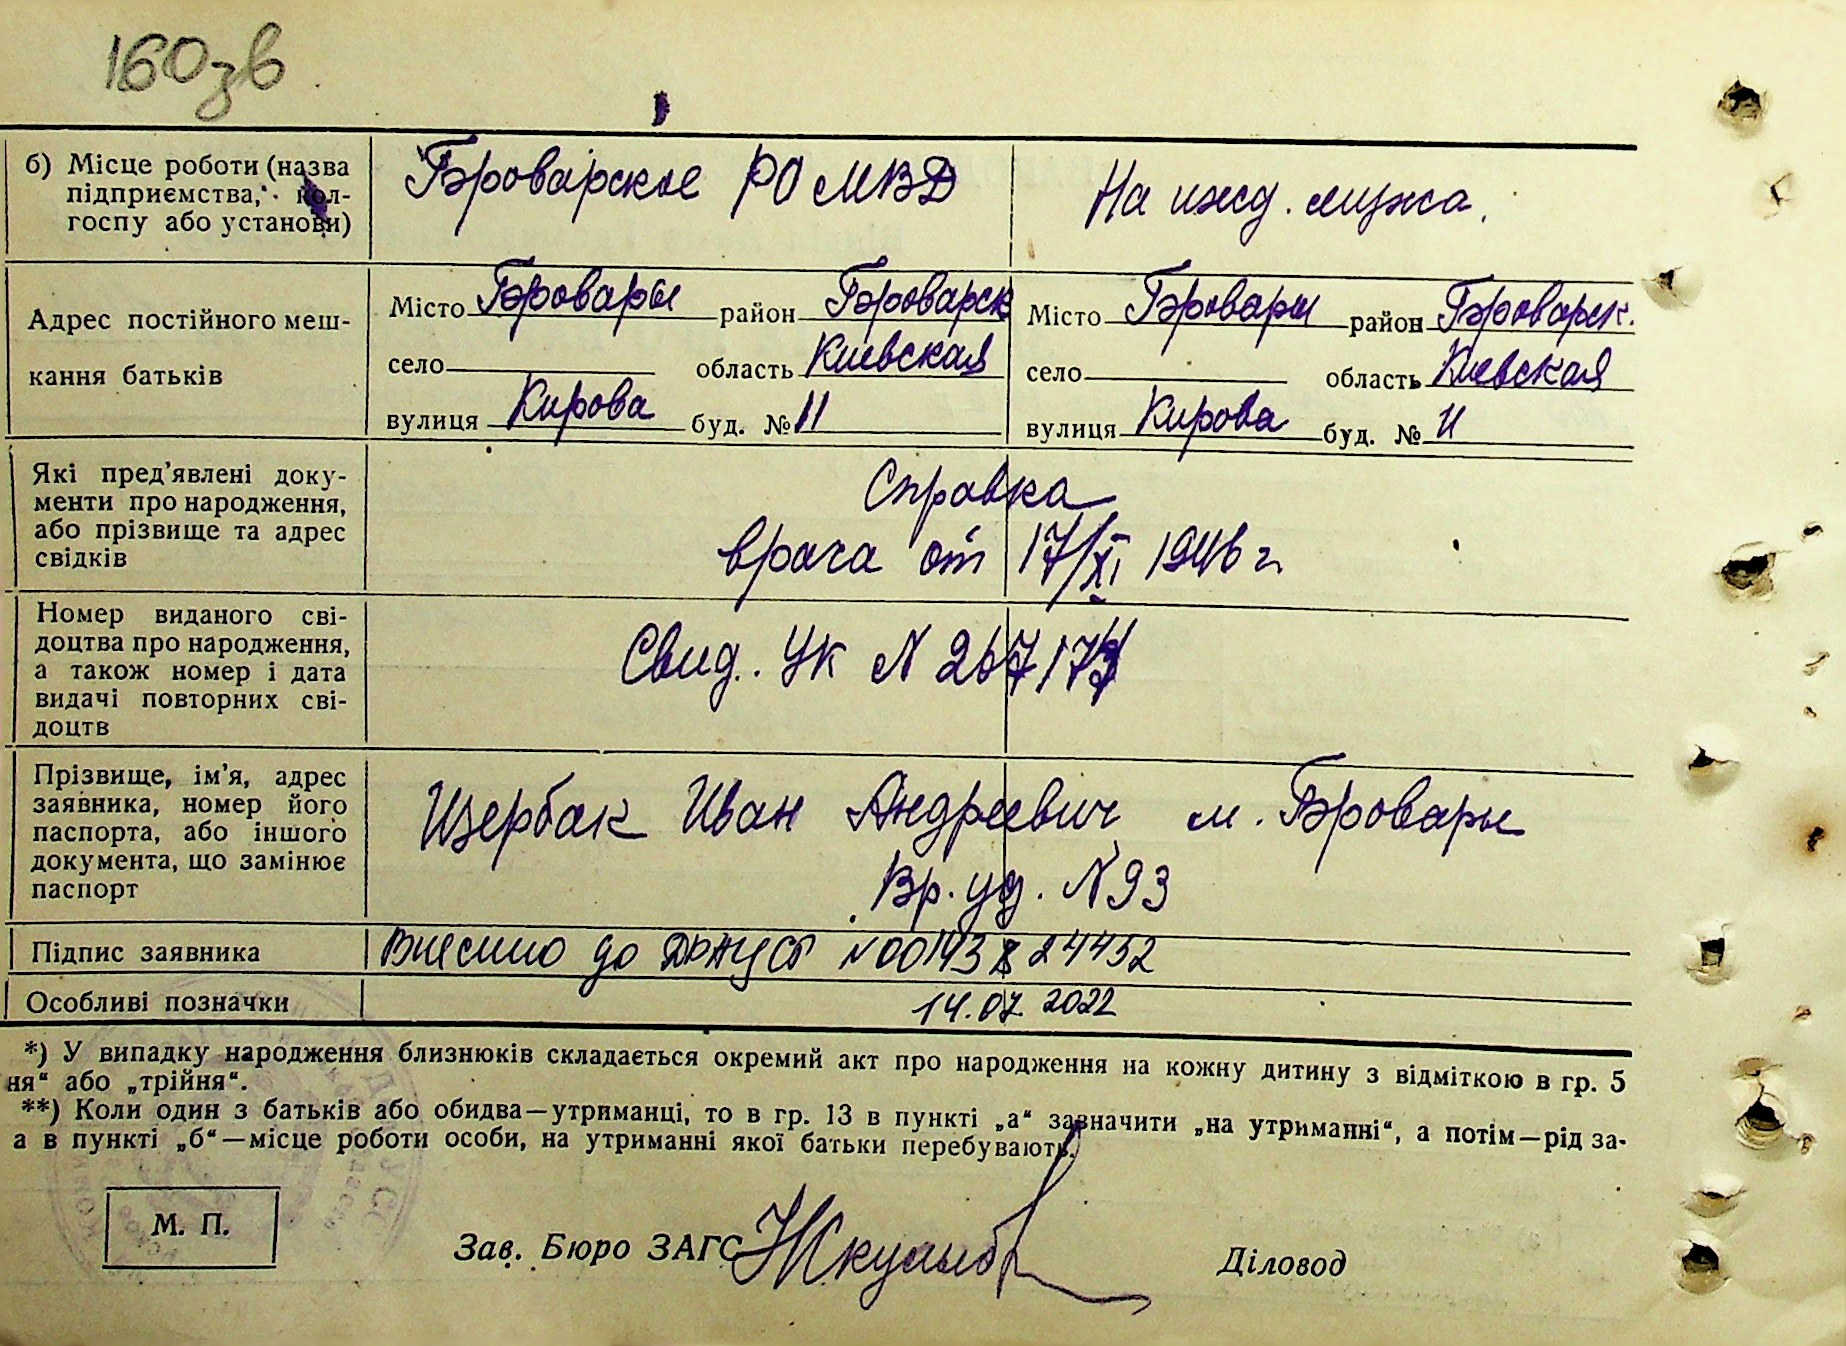 160зв
б) Місце роботи (назва
підприємства, кол-
госпу або установи)
Броварское РО МВД
На ижд. мужа.
Адрес постійного меш-
кання батьків
Місто Бровары район Броварск
село область Киевская
вулиця Кирова буд. № 11
Місто Бровары район Броварск.
село область Киевская
вулиця Кирова буд. № 11
Які пред’явлені доку-
менти про народження,
або прізвище та адрес
свідків
Справка
врача от 17/XI 1946 г.
Номер виданого сві-
доцтва про народження,
а також номер і дата
видачі повторних сві-
доцтв
Свид. УК N
Прізвище, ім’я, адрес
заявника, номер його
паспорта, або іншого
документа, що замінює
паспорт
Щербак Иван Андреевич м. Бровары
Вр. уд. N 93
Підпис заявника
Внесено до ДРАЦСГ N 00143824452
Особливі позначки
14.07.2022
*) У випадку народження близнюків складається окремий акт про народження на кожну дитину з відміткою в гр. 5
ня“ або „трійня“.
**) Коли один з батьків або обидва—утриманці, то в гр. 13 в пункті „а“ зазначити „на утриманні“, а потім—рід за-
а в пункті „б“—місце роботи особи, на утриманні якої батьки перебувають.
М. П.
Зав. Бюро ЗАГС
Діловод